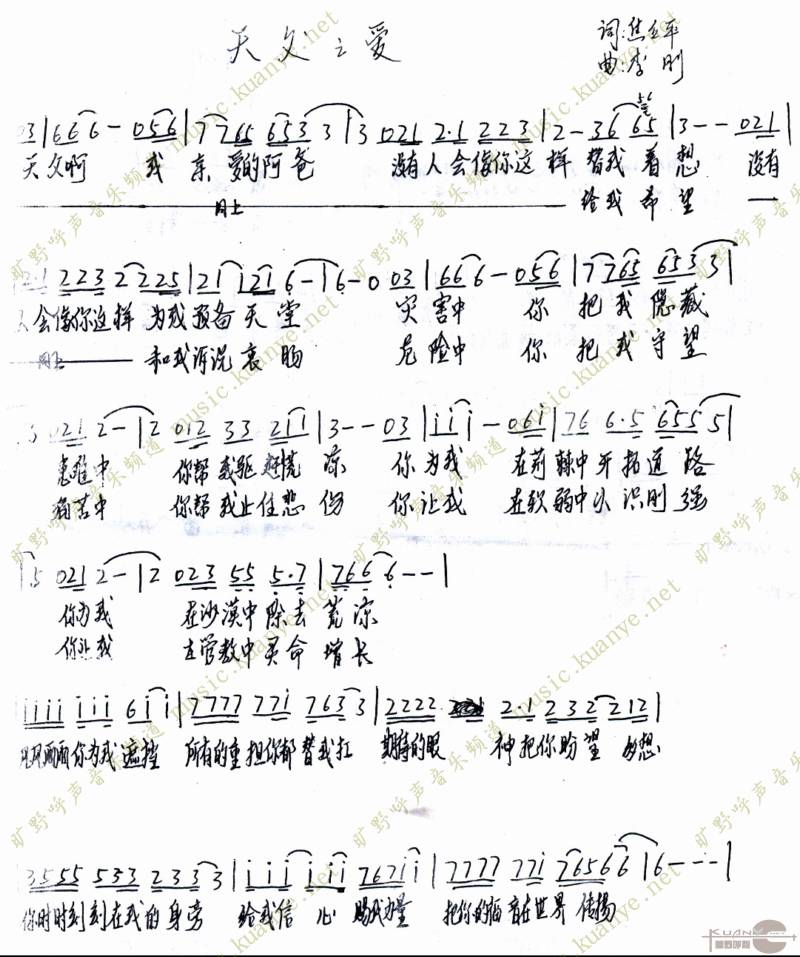 天父之爱
词:焦么平
曲:李刚
03|666-056|7765 6533|3 021 2·1 223|2-36 65|3--021|
天父啊 我亲爱的阿爸 没有人会像你这样替我着想 没有
同上 给我希望
2·1 223 2225|21121 6-|6-0 03|666-056|7765 6533|
人会像你这样为我预备天堂 灾害中 你把我隐藏
同上 和我诉说衷肠 危险中 你把我守望
3 021 2-|2 012 33 211|3--03|iii-06i|76 6·5 6555|
患难中 你帮我驱赶慌凉 你为我 在荆棘中开拓道路
痛苦中 你帮我止住悲伤 你让我 在软弱中认识刚强
5 021 2-|2 023 55 5·7|766 6--|
你为我 在沙漠中除去荒凉
你让我 在管教中灵命增长
iiii iii 6ii|7777 77i 7633|2222 2·1 232 212|
风风雨雨你为我遮挡 所有的重担你都替我扛 期待的眼神把你盼望
3555 533 2333|iii iii 767ii|7777 77i 76566|6---|
你时时刻刻在我的身旁 给我信心 赐我力量 把你的福音在世界传扬
旷野呼声音乐频道 music.kuanye.net
KUANYE
旷野呼声